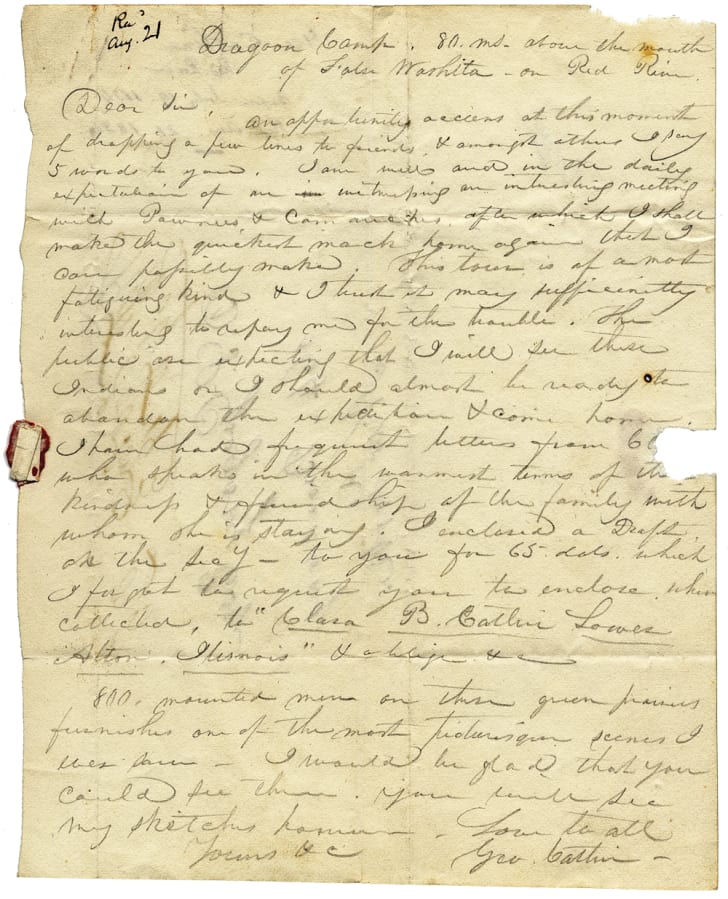 Rd
Aug. 21
Dragoon Camp. 80. ms. above the mouth
of False Washita - on Red River.
Dear Sir, an oppertunity occurs at this moment
of dropping a few lines to friends, & amongst others I say
5 words to you. I am well and in the daily
expectation of our witnessing an interesting meeting
with Pawnees & Camanches, after which I shall
make the quickest march home again that I
can possibly make. This tour is of a most
fatiguing kind & I trust it may sufficiently
interesting to repay me for the trouble. The
public are expecting that I will see these
Indians or I should almost be ready to
abandon the expedition & come home.
I have had frequent letters from
who speaks in the warmest terms of the
kindness & friendship of the family with
whom she is staying. I enclosed a Draft
on the Secy - to you for 65 dols. which
I forgot to request you to enclose, when
collected, to "Clara B. Catlin Lower
Alton. Ilinois" & oblige &c
800. mounted men on these green prairies
furnishes one of the most picturesque scenes I
ever saw - I would be glad that you
could see them. You will see
my sketches however. Love to all
Yours &c Geo. Catlin -